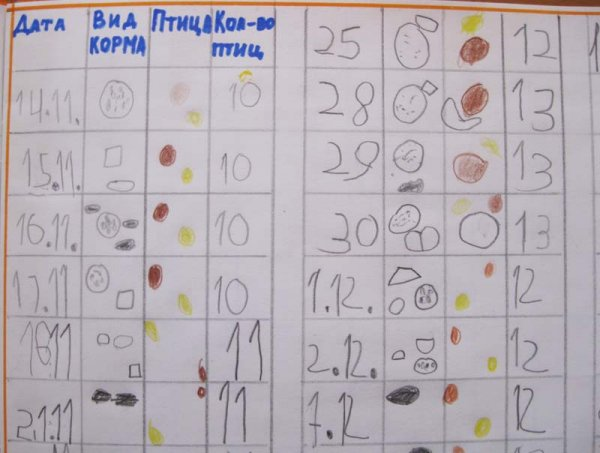 Дата
Вид
корма
Птица
Кол-во
птиц
14.11. 10
15.11. 10
16.11. 10
17.11 10
18.11 11
21.11 11
25 12
28 13
29 13
30 13
1.12. 12
2.12. 12
7.12 12